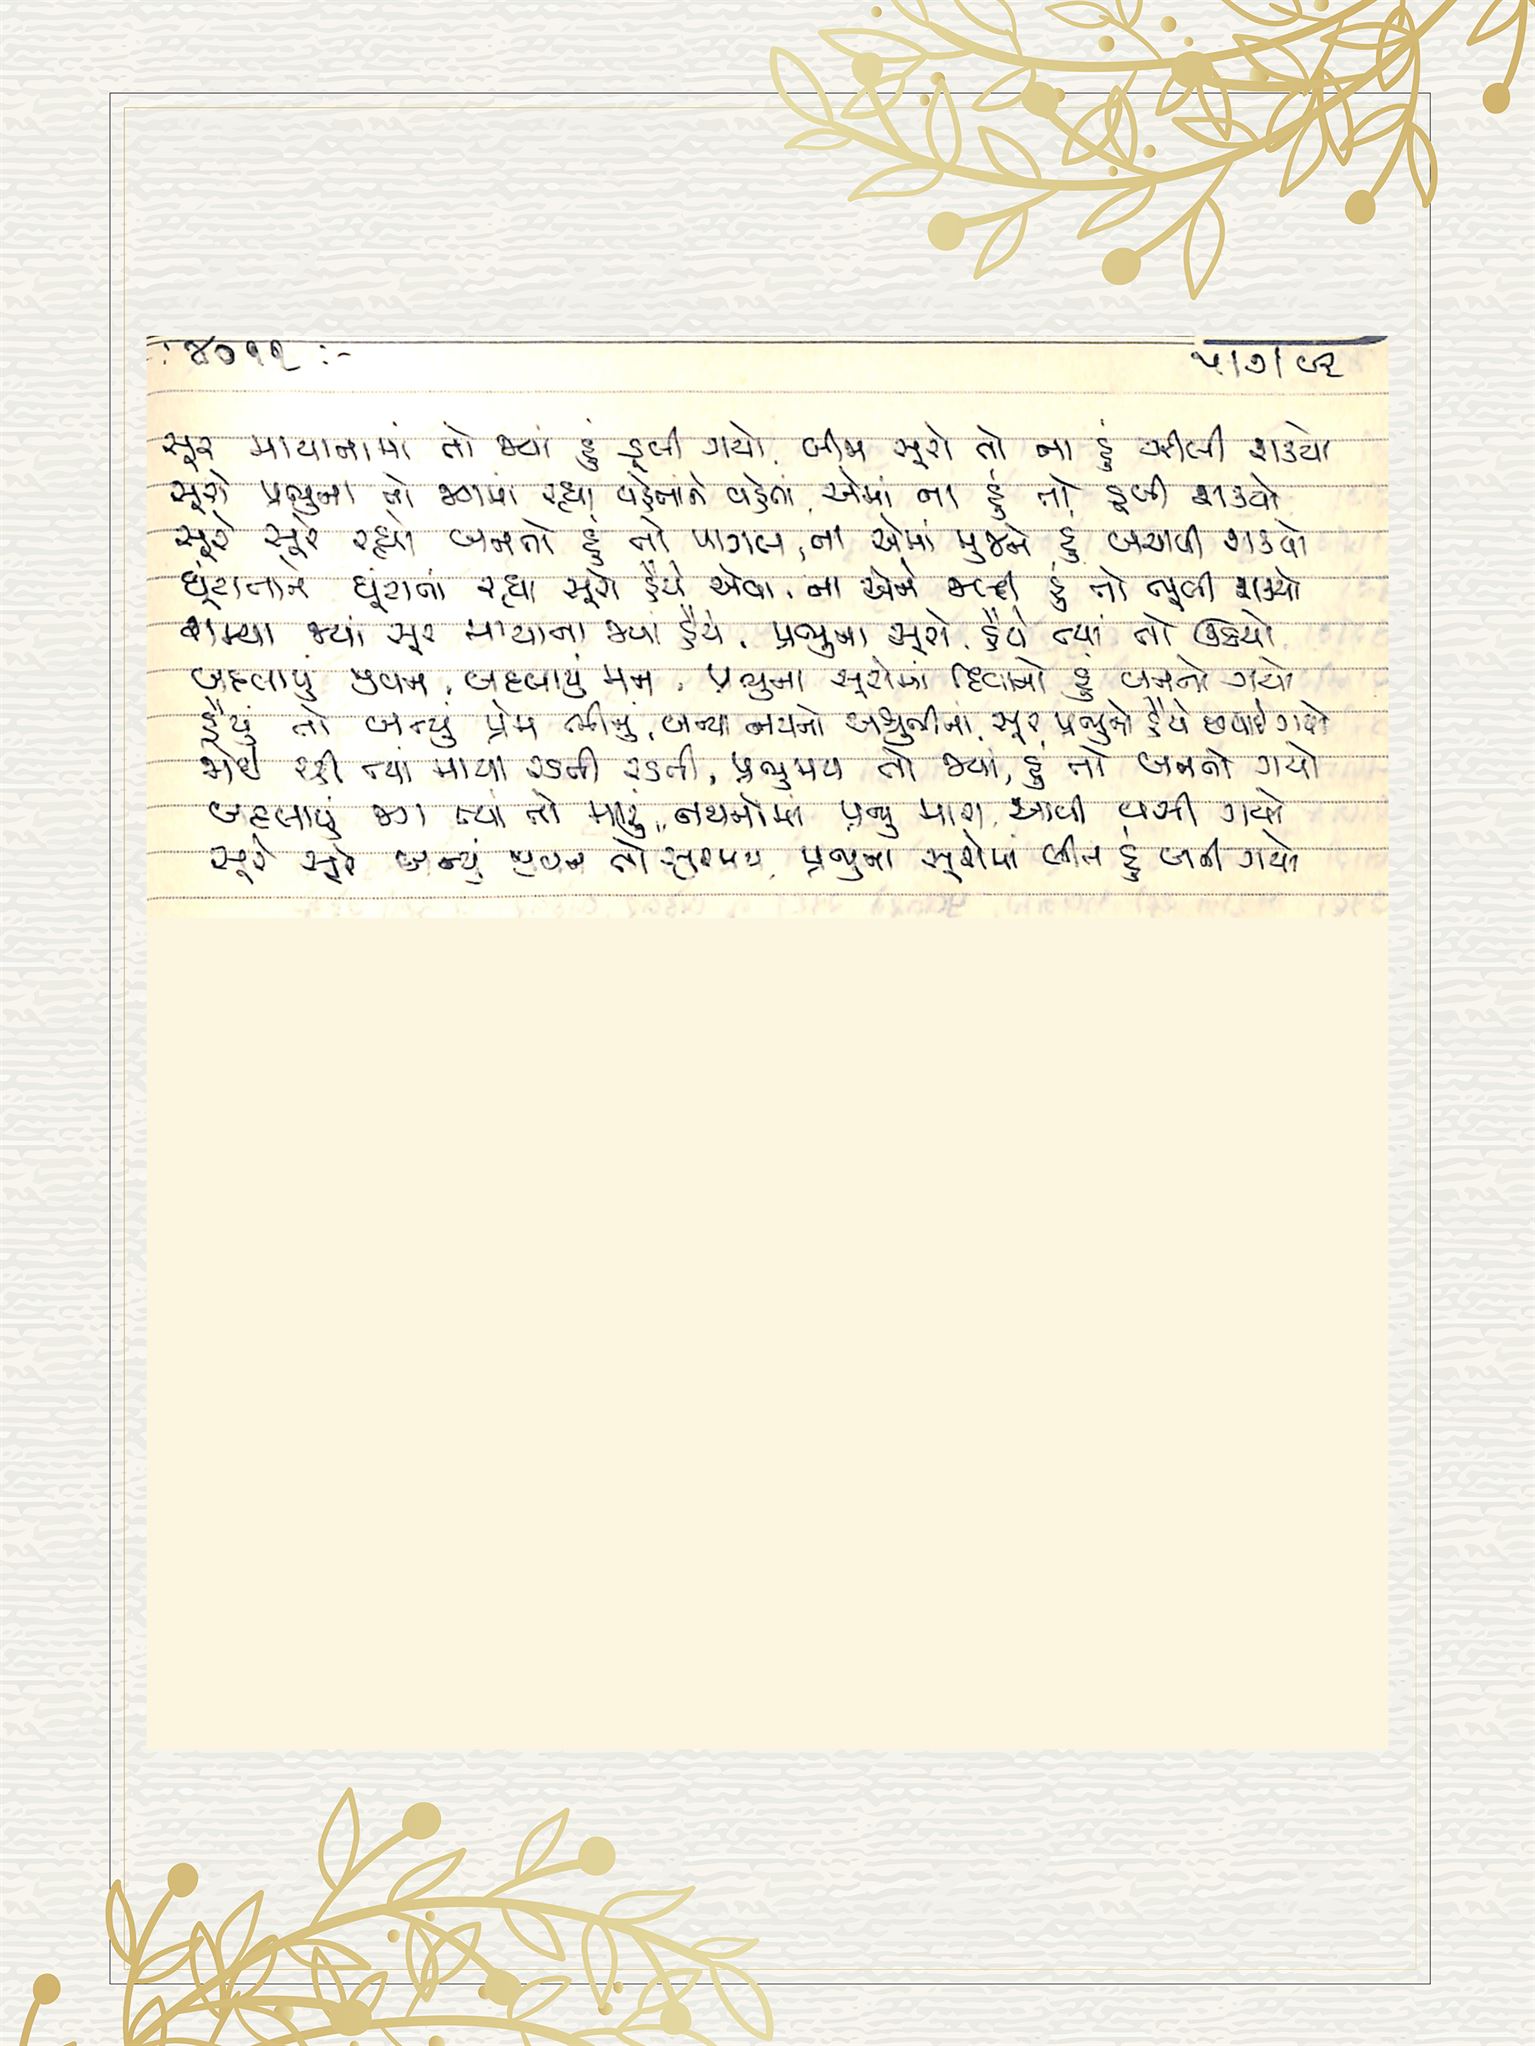 : ૪૦૧૧ :- ૫/૭/૯૨
સૂર માયાનામાં તો જ્યાં હું ડૂબી ગયો, બીજા સૂરો તો ના હું ઝીલી શક્યો
સૂરો પ્રભુના તો જગમાં રહ્યા વહેતાને વહેતાં, એમાં ના હું તો ડૂબી શક્યો
સૂરે સૂરે રહ્યો બનતો હું તો પાગલ, ના એમાં મુજને હું બચાવી શક્યો
ઘૂંટાતાને ઘૂંટાતાં રહ્યા સૂરો હૈયે એવા, ના એને જલ્દી હું તો ભૂલી શક્યો
શમ્યા જ્યાં સૂર માયાના જ્યાં હૈયે, પ્રભુના સૂરો, હૈયે ત્યાં તો ઊઠયો
બદલાયું જીવન, બદલાયું મન, પ્રભુના સૂરોમાં દિવાનો હું બનતો ગયો
હૈયું તો બન્યું પ્રેમ ભીનું, બન્યા નયનો અશ્રુભીનાં, સૂર પ્રભુનો હૈયે છવાઈ ગયો
જોઈ રહી ત્યાં માયા રડતી રડતી, પ્રભુમય તો જ્યાં, હું તો બનતો ગયો
બદલાયું જગ ત્યાં તો મારું, નયનોમાં પ્રભુ મારા, આવી વસી ગયો
સૂરે સૂરે બન્યું જીવન તો સૂરમય, પ્રભુના સૂરોમાં લીન હું બની ગયો